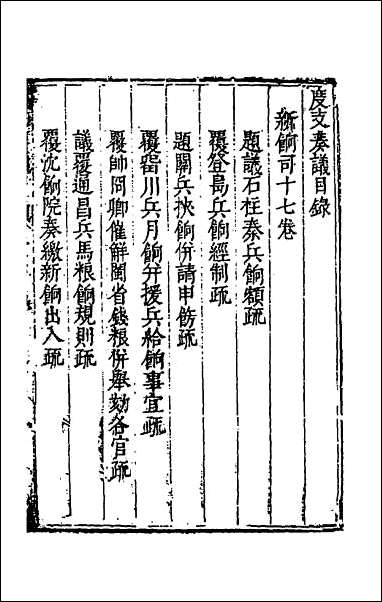 度支奏議目錄
新餉司十七卷
題議石柱秦兵餉額疏
覆登島兵餉經制疏
題關兵挾餉併請申飭疏
覆留川兵月餉幷援兵給餉事宜疏
覆帥岡卿催解閩省錢粮併舉劾各官疏
議覆通昌兵馬粮餉規則疏
覆沈餉院奏繳新餉出入疏